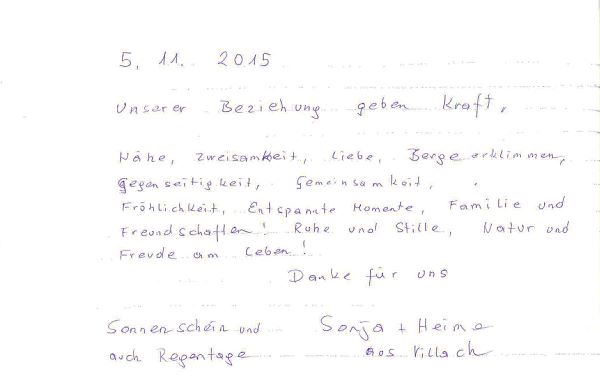 5. 11. 2015
Unserer Beziehung geben Kraft,
Nähe, Zweisamkeit, Liebe, Berge erklimmen,
Gegenseitigkeit, Gemeinsamkeit,
Fröhlichkeit, Entspannte Momente, Familie und
Freundschaften! Ruhe und Stille, Natur und
Freude am Leben!
Danke für uns
Sonnenschein und
auch Regentage
Sonja + Heime
aus Villach